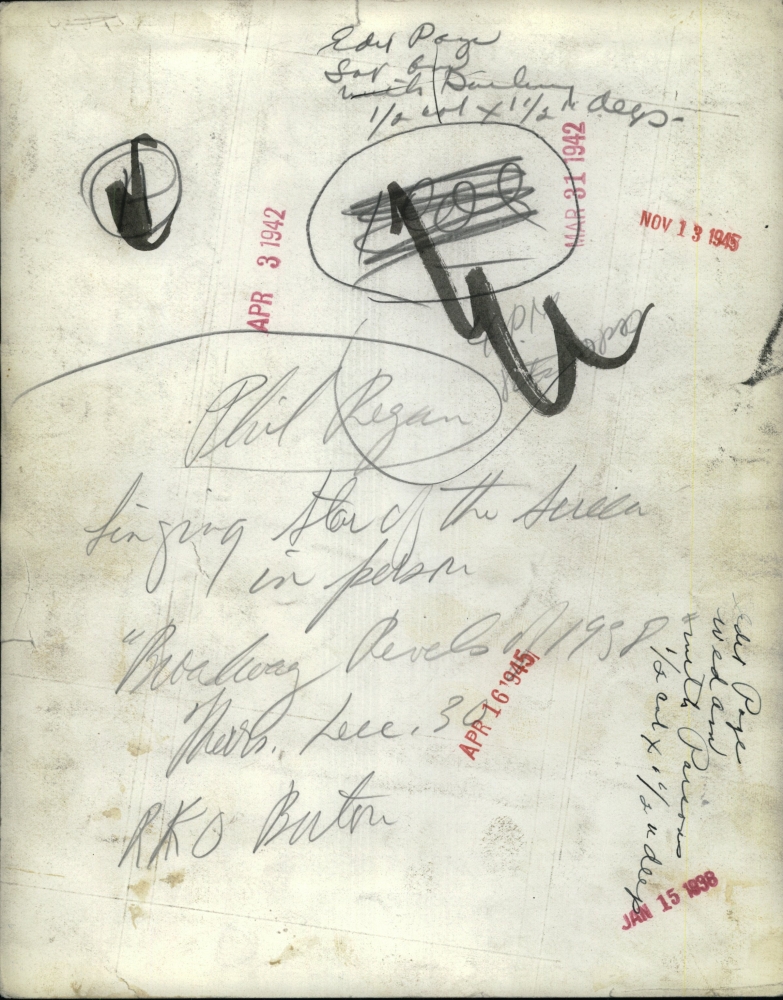 Edit Page
Sat am
with Darling
1/2 col x 1 1/2" deep
MAR 31 1942
NOV 13 1945
APR 3 1942
Phil Regan
Singing Star of the Screen
in person
"Broadway Revels of 1938
Thurs. Dec. 30
APR 16 1945
RKO Boston
Edit Page
Wed am
with Parsons
1/2 col x 1 1/2" deep
JAN 15 1938